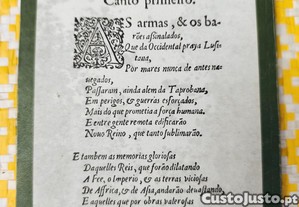 Canto primeiro.
AS armas, & os ba-
rões assinalados,
Que da Occidental praya Lusi-
tana,
Por mares nunca de antes na-
uegados,
Passaram, ainda alem da Taprobana,
Em perigos, & guerras esforçados,
Mais do que prometia a força humana.
E entre gente remota edificarão
Nouo Reino, que tanto sublimarão.
E tambem as memorias gloriosas
Daquelles Reis, que forão dilatando
A Fee, o Imperio, & as terras viciosas
De Affrica, & de Asia, andarão deuastando,
E aquelles que por obras valerosas
CustoJusto.pt